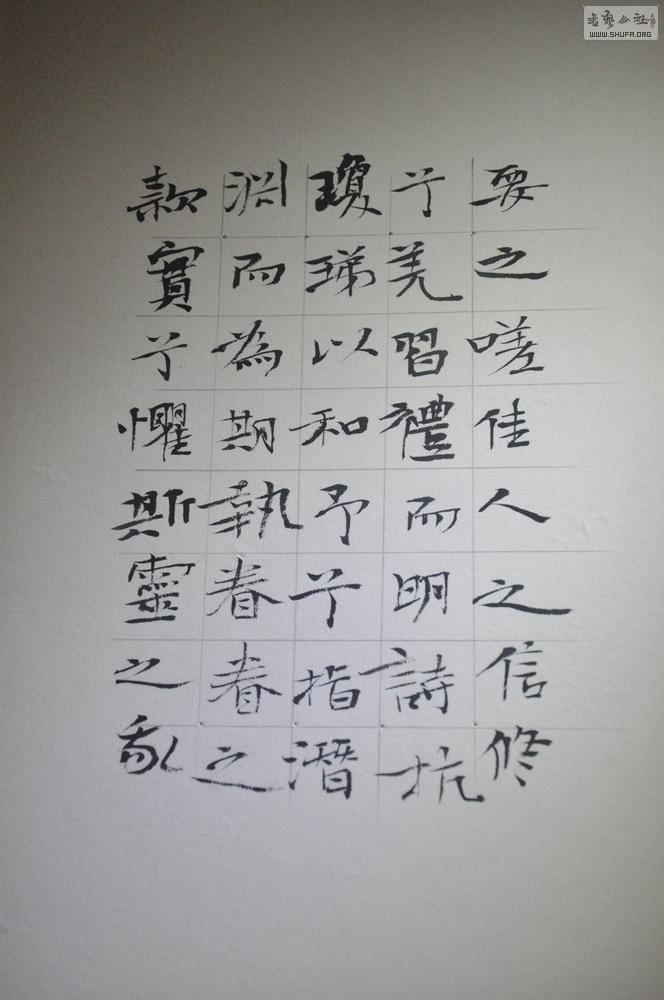 要之嗟佳人之信修
兮羌習禮而明詩抗
瓊珶以和予兮指潛
渊而為期執眷眷之
款實兮懼斯靈之我
書藝公社
WWW.SHUFA.ORG